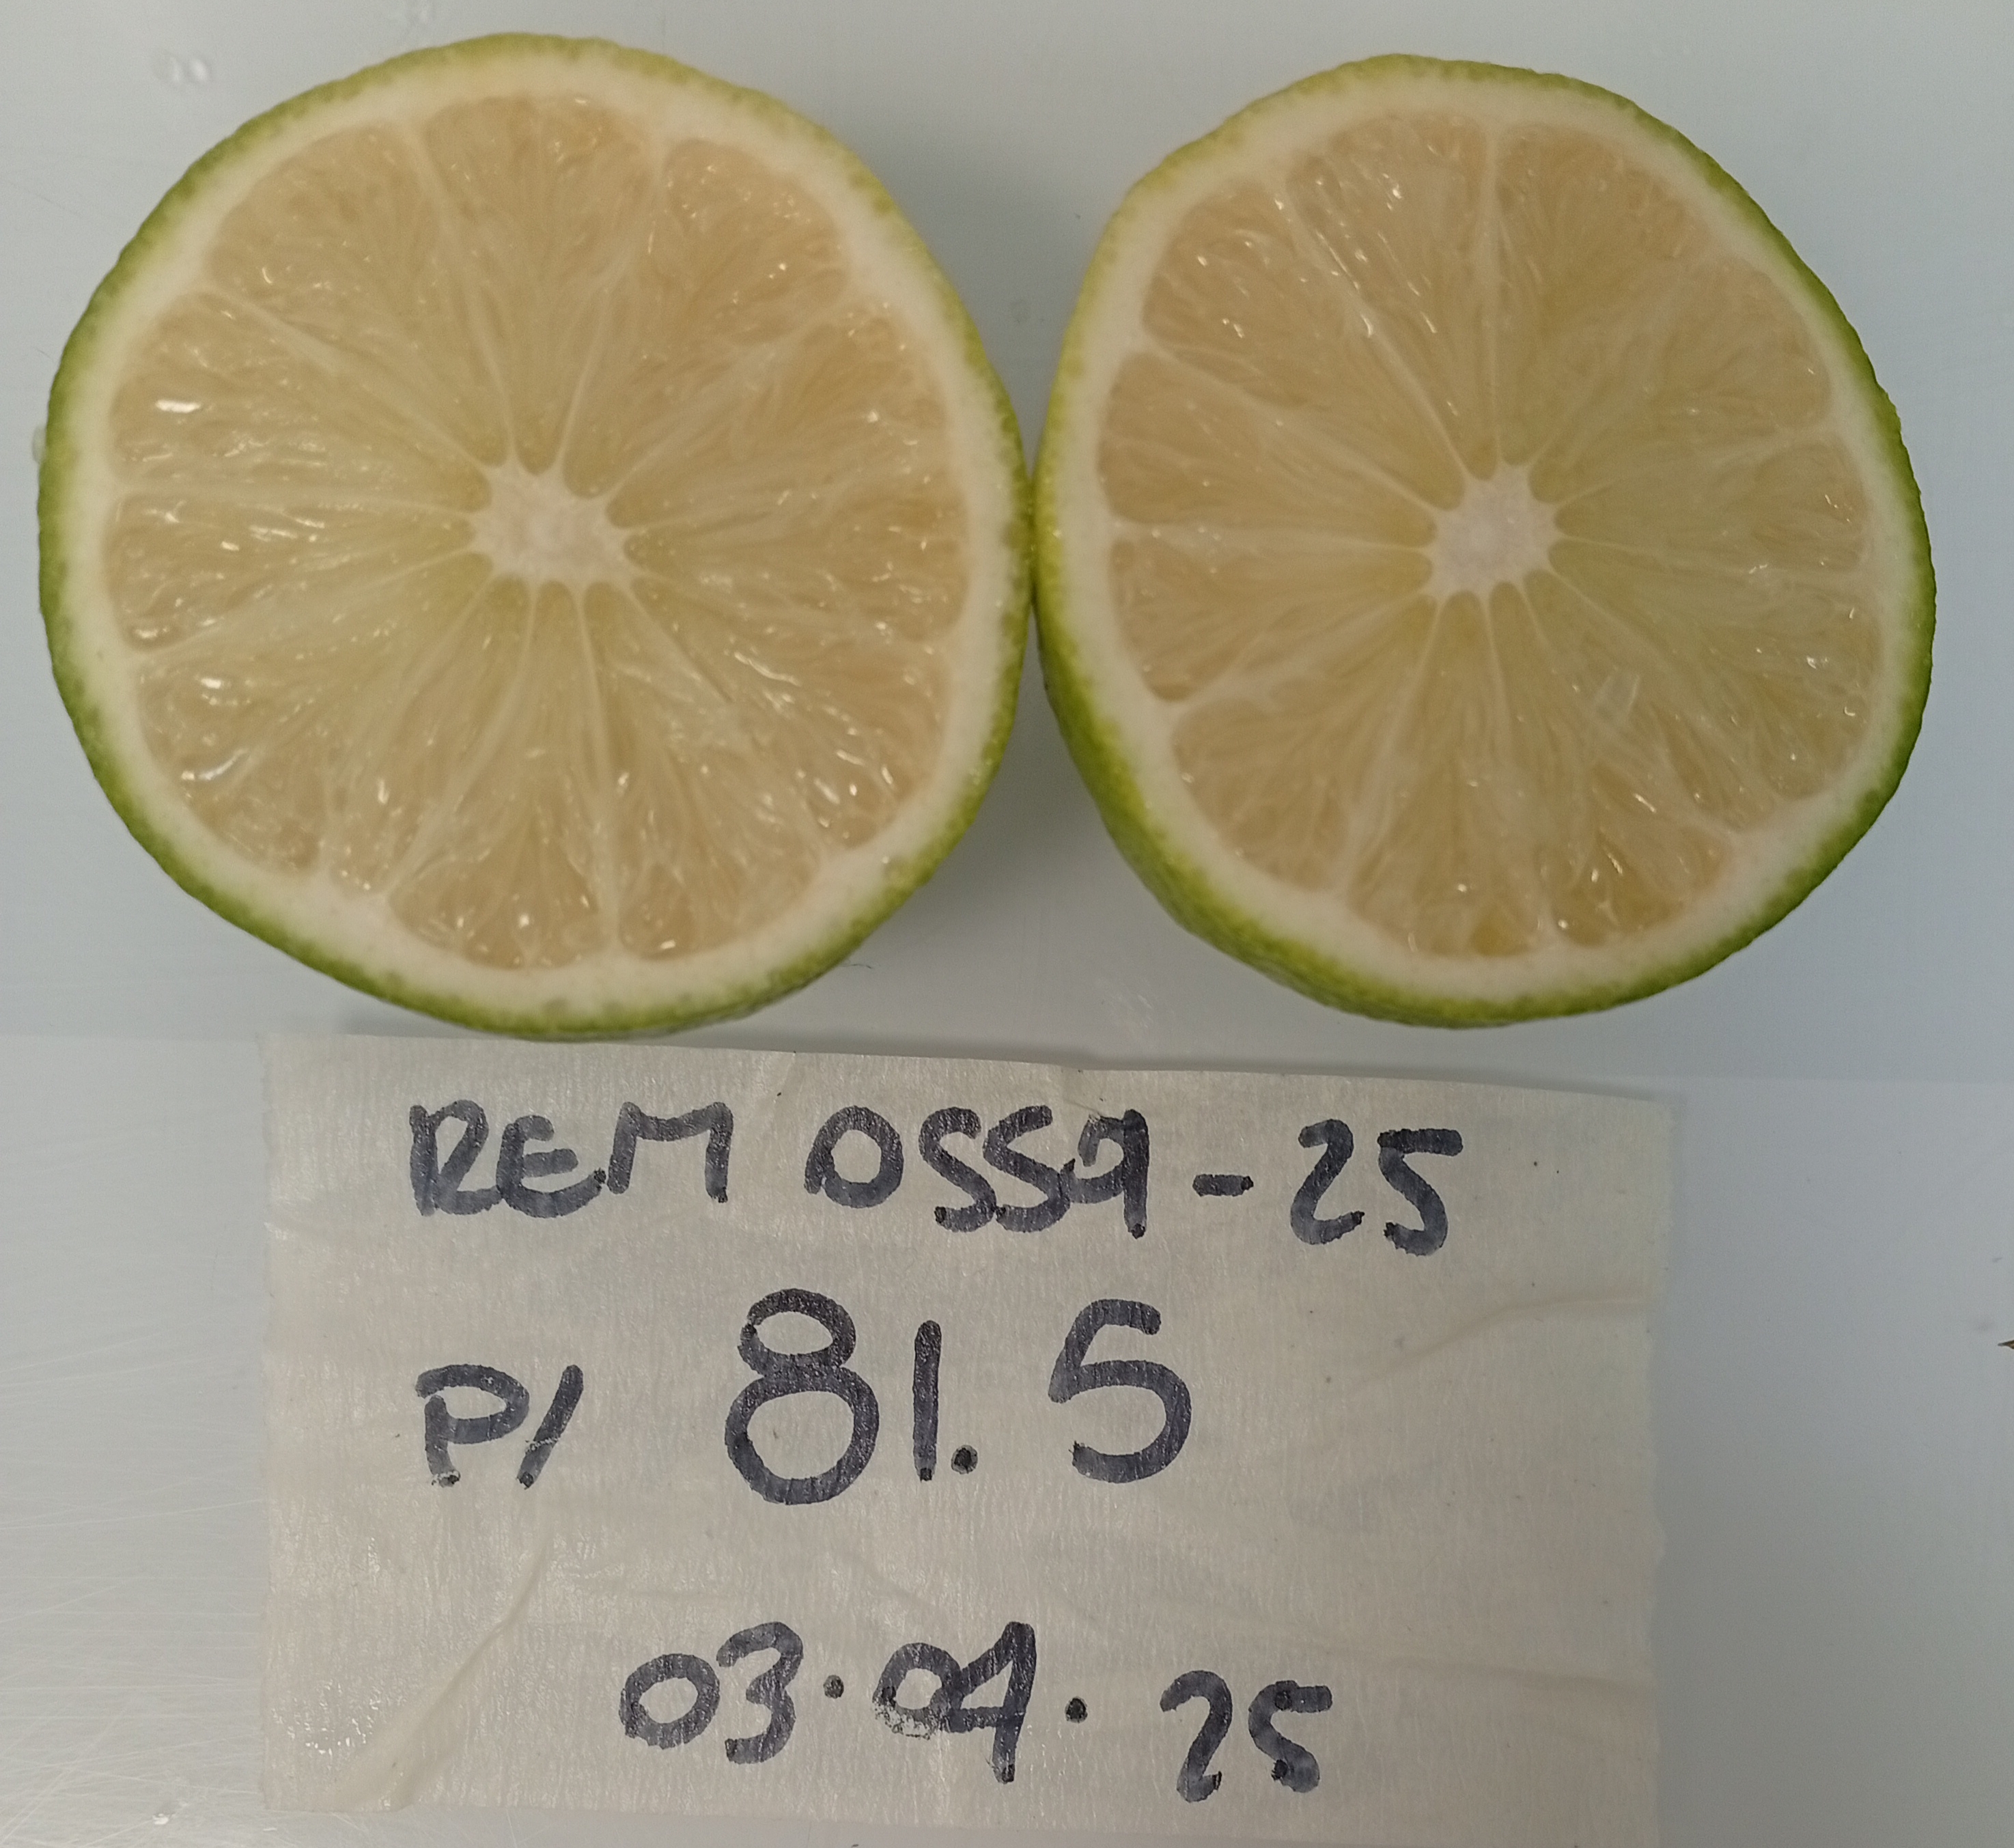 REM 0559-25
P/ 81.5
03.04.25